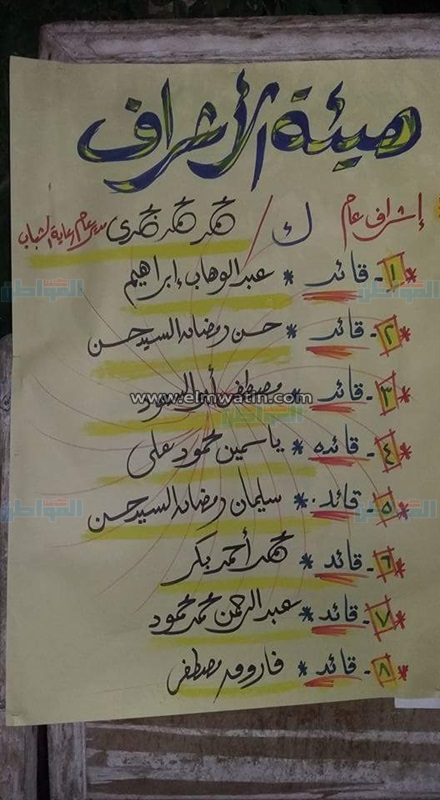 هيئة الأشراف
إشراف عام ك/ محمد محمد خيرى مدير عام رعاية الشباب
١- قائد * عبدالوهاب إبراهيم
٢- قائد * حسن رمضان السيد حسن
٣- قائد * مصطفى أبو السعود
www.elmwatin.com
٤- قائده * ياسمين محمود على
٥- قائد * سليمان رمضان السيد حسن
٦- قائد * محمد أحمد بكر
٧- قائد * عبدالرحمن محمد محمود
٨- قائد * فاروق مصطفى
المواطن
المواطن
المواطن
المواطن
المواطن